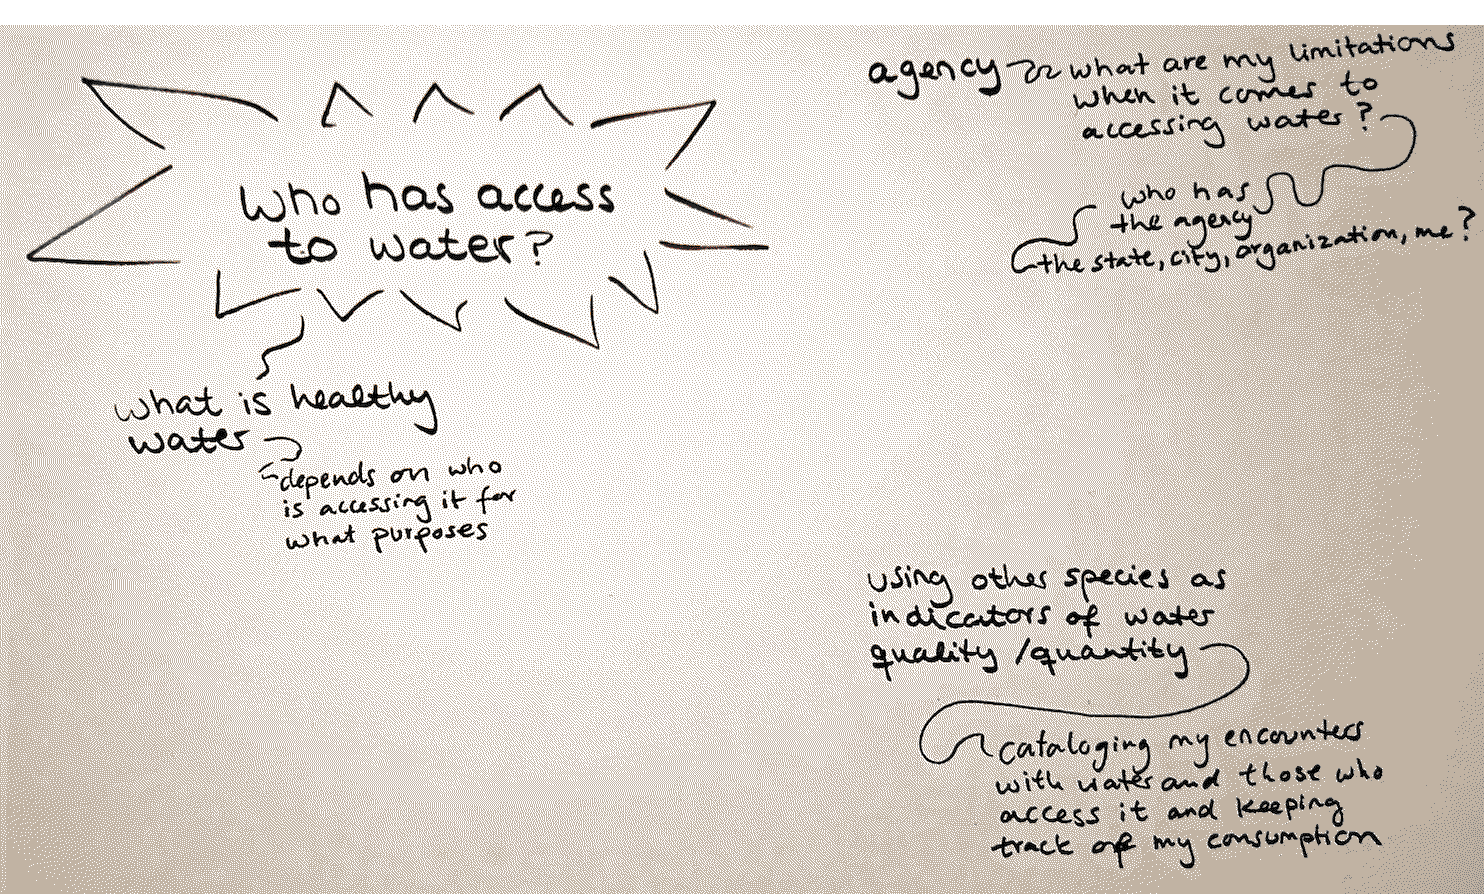 Who has access
to water?
what is healthy
water
depends on who
is accessing it for
what purposes
agency
what are my limitations
when it comes to
accessing water?
who has
the agency
the state, city, organization, me?
using other species as
indicators of water
quality/quantity
cataloging my encounters
with water and those who
access it and keeping
track of my consumption